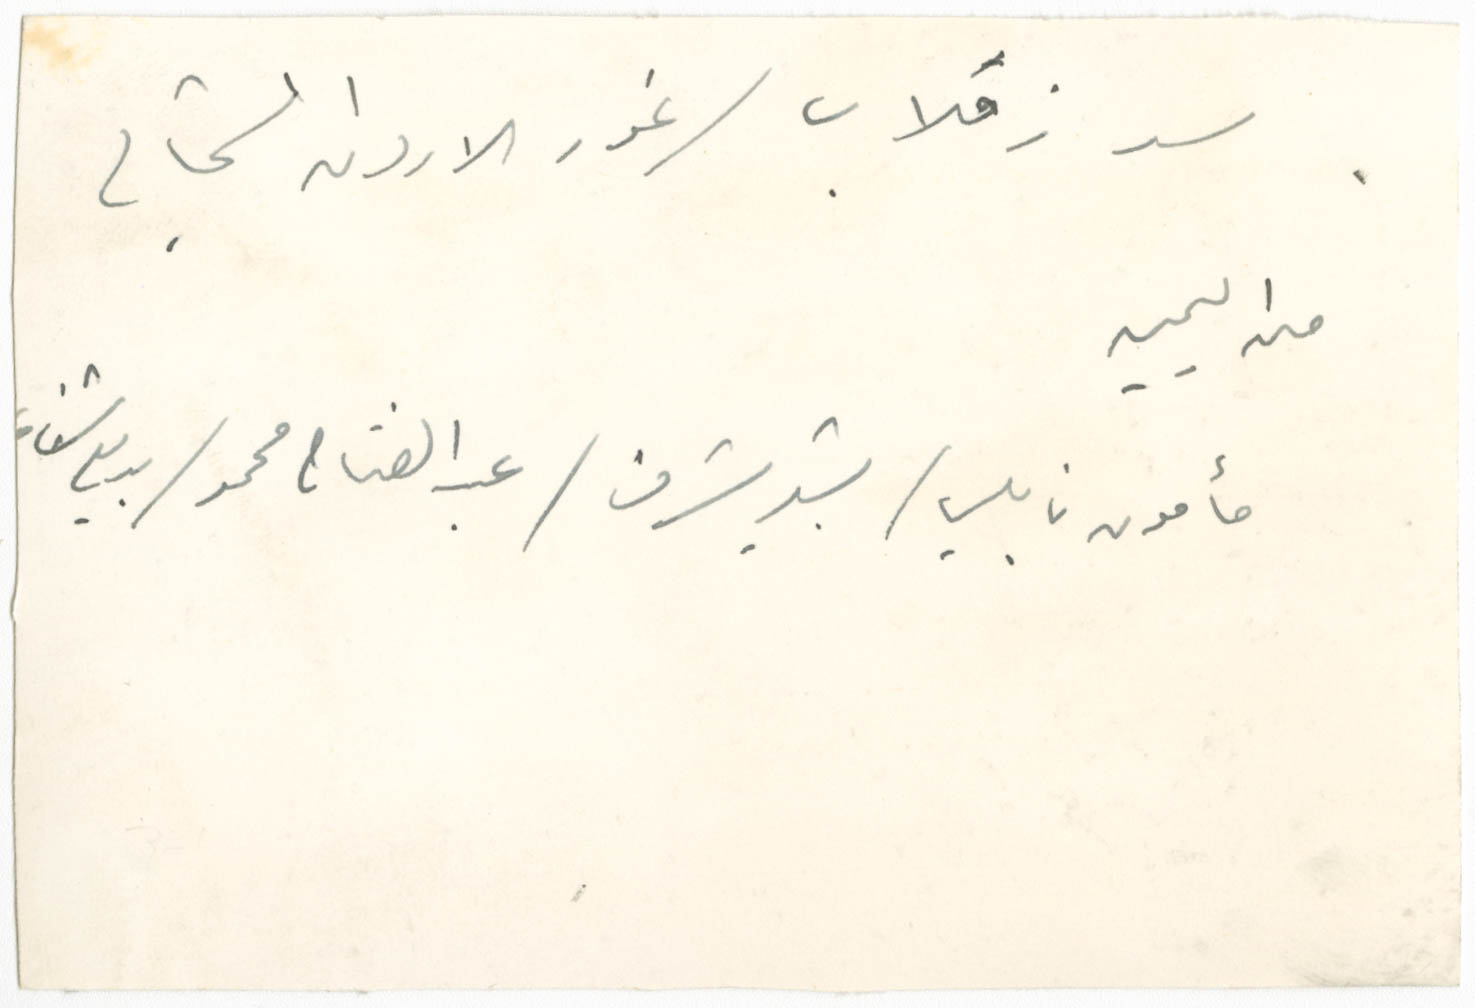 سد زقلاب / غور الاردن الشمالي
من اليمين
مأمون نابلسي / بشير شريف / عبد الفتاح محمد / بديع